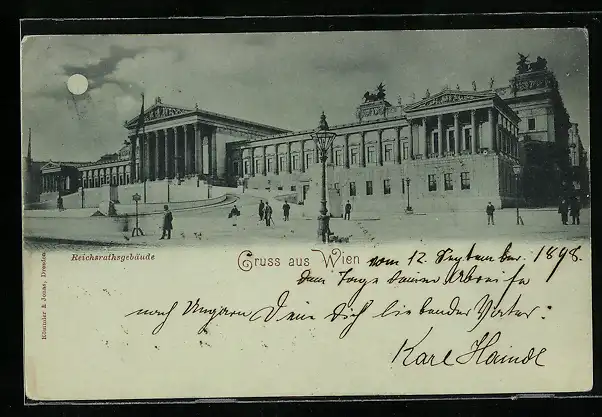 Reichsrathsgebäude
Gruss aus Wien
vom 12. September 1898.
dem Tage deiner Abreise
nach Ungarn Dein Dich liebender Vater:
Karl Haindl
Römmler & Jonas, Dresden